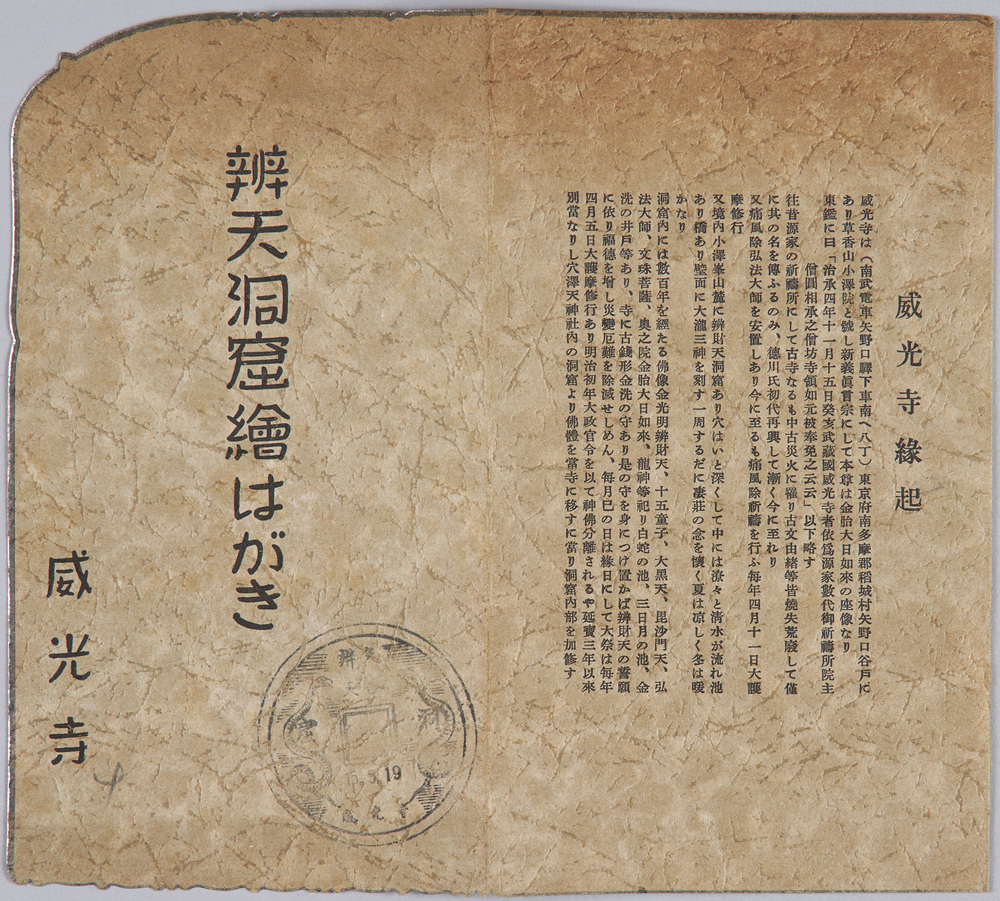 威光寺緣起
威光寺は(南武電車矢野口驛下車南へ八丁)東京府南多摩郡稻城村矢野口谷戸に
あり草香山小澤院と號し新義眞言宗にして本尊は金胎大日如來の座像なり
東鑑に曰「治承四年十一月十五日癸亥武藏國威光寺者依爲源家數代御祈禱所院主
僧圓相承之僧坊寺領如元被奉免之云云」以下略す
往昔源家の祈禱所にして古寺なるも中古災火に罹り古文由緒等皆燒失荒廢して僅
に其の名を傳ふるのみ、德川氏初代再興して漸く今に至れり
又痛風除弘法大師を安置しあり今に至るも痛風除祈禱を行ふ每年四月十一日大護
摩修行
又境內小澤峯山麓に辨財天洞窟あり穴はいと深くして中には潦々と淸水が流れ池
あり橋あり壁面に大瀧三神を刻す一周するだに凄莊の念を懷く夏は凉しく冬は暖
かなり
洞窟內には數百年を經たる佛像金光明辨財天、十五童子、大黑天、毘沙門天、弘
法大師、文珠菩薩、奧之院金胎大日如來、龍神等祀り白蛇の池、三日月の池、金
洗の井戸等あり、寺に古錢形金洗の守あり是の守を身につけ置かば辨財天の誓願
に依り福德を增し災變厄難を除滅せしめん、每月巳の日は緣日にして大祭は每年
四月五日大護摩修行あり明治初年大政官令を以て神佛分離されるや延寶三年以來
別當なりし穴澤天神社內の洞窟より佛體を當寺に移すに當り洞窟內部を加修す
辨天洞窟繪はがき
威光寺
5.3.19